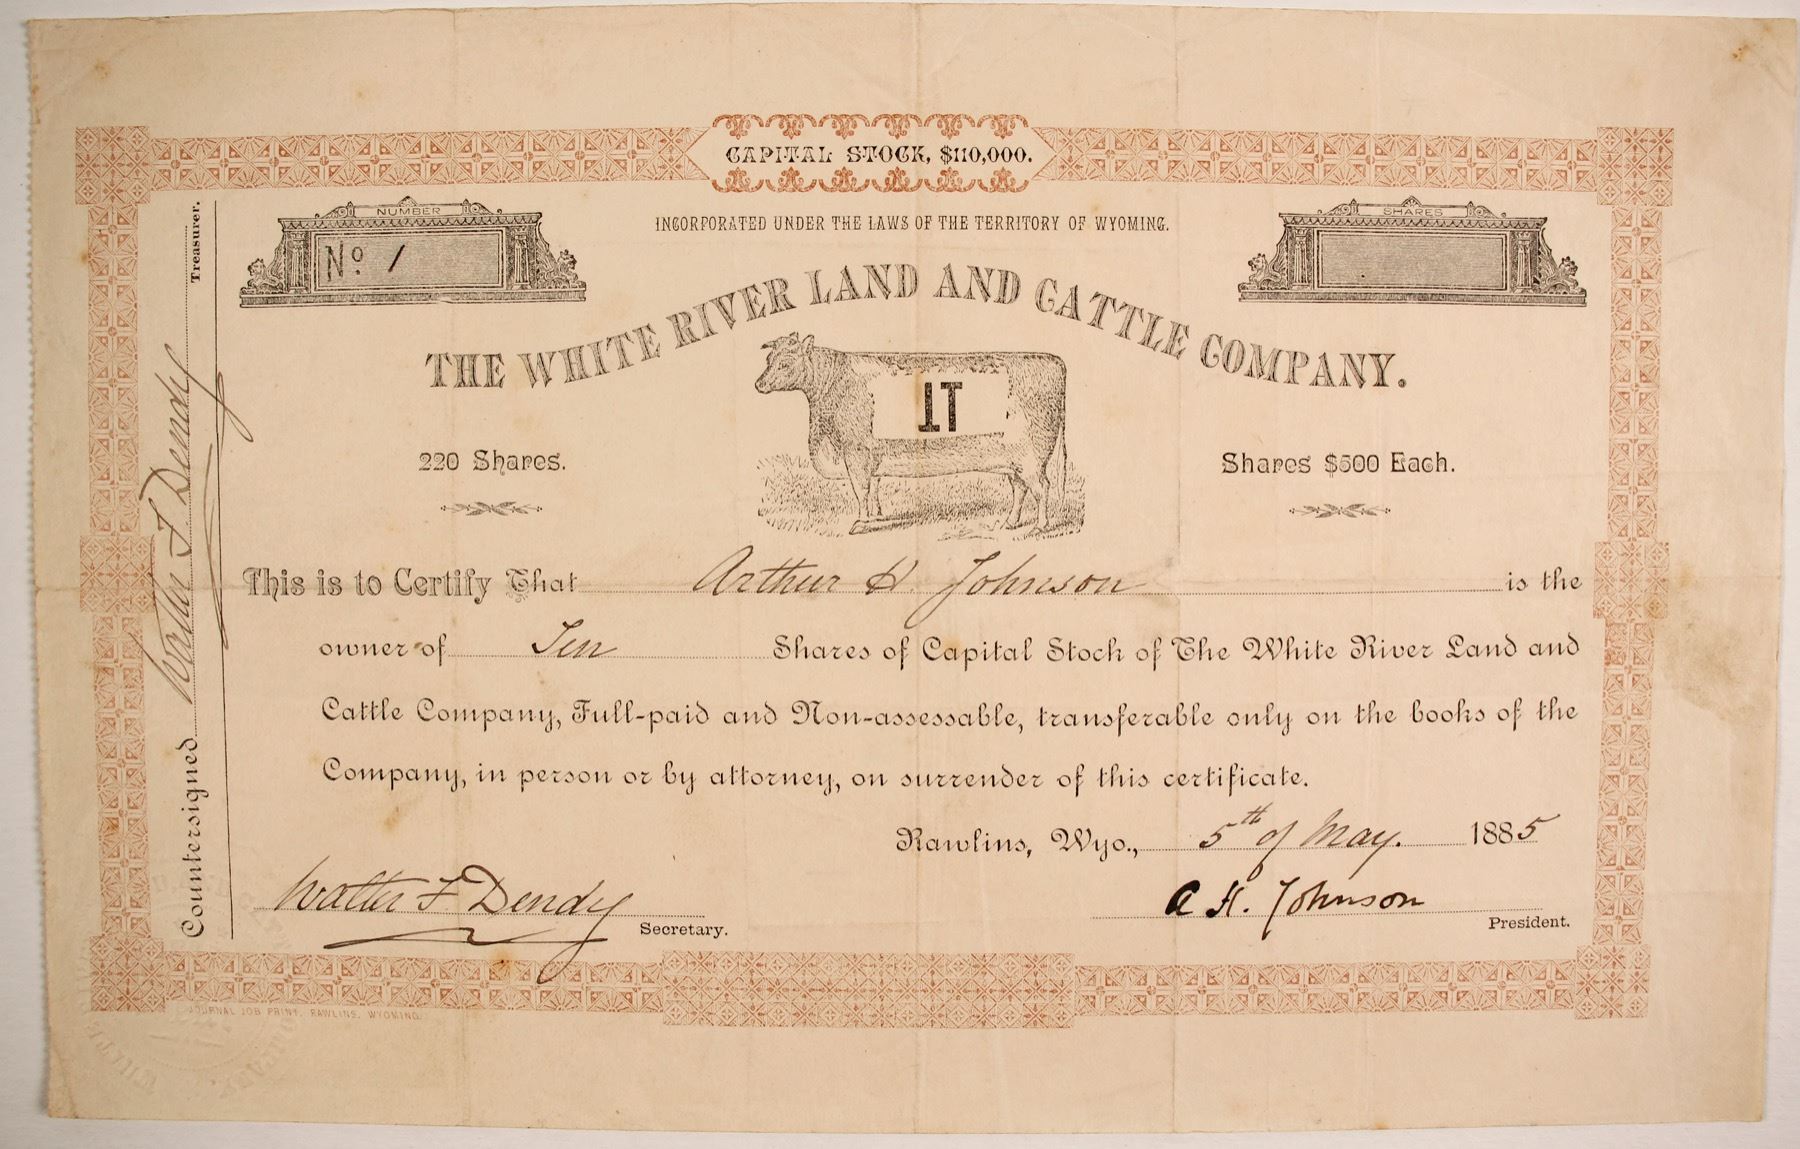 CAPITAL STOCK, $110,000.
INCORPORATED UNDER THE LAWS OF THE TERRITORY OF WYOMING.
NUMBER
No. 1
SHARES
THE WHITE RIVER LAND AND CATTLE COMPANY.
220 Shares.
Shares $500 Each.
This is to Certify That Arthur H. Johnson is the
owner of Ten Shares of Capital Stock of The White River Land and
Cattle Company, Full-paid and Non-assessable, transferable only on the books of the
Company, in person or by attorney, on surrender of this certificate.
Rawlins, Wyo., 5th of May. 1885
Walter F. Dendy Secretary.
A. H. Johnson President.
Countersigned Walter F. Dendy Treasurer.
JOURNAL JOB PRINT, RAWLINS, WYOMING.